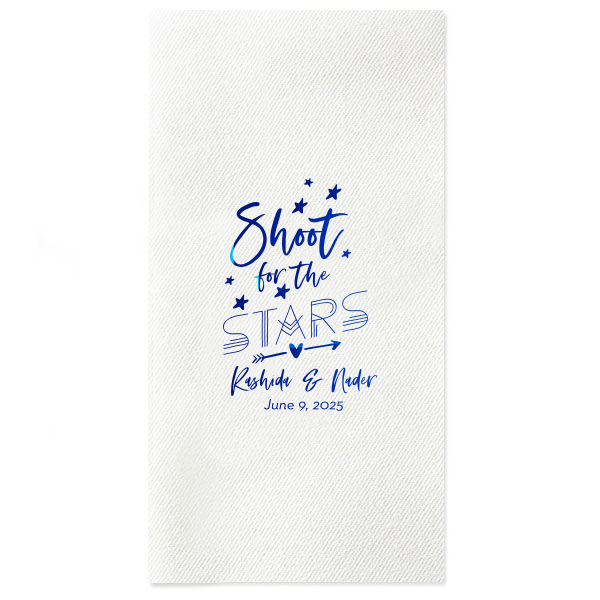 Shoot
for the
STARS
Rashida & Nader
June 9, 2025